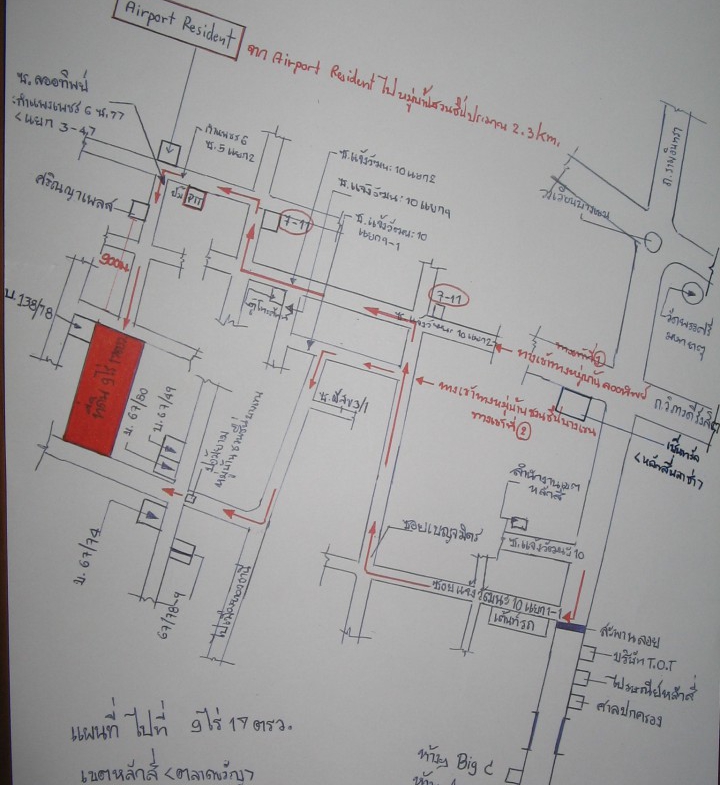 Airport Resident
จาก Airport Resident ไปหมู่บ้านชวนชื่นประมาณ 2.3 km.
ซ.ลออทิพย์
กำแพงเพชร 6 ซ.77
<แยก 3-4,7
กำแพงเพชร 6
ซ.5 แยก2
ซ.แจ้งวัฒนะ 10 แยก2
ซ.แจ้งวัฒนะ 10 แยก9
ซ.แจ้งวัฒนะ 10
แยก9-1
ถ.รามอินทรา
วงเวียนบางเขน
ปั๊ม ปตท
7-11
900ม
7-11
ตู้โทรศัพท์
วัดพระศรี
มหาธาตุ
ซ.แจ้งวัฒนะ 10 แยก2
ทางเข้าที่ 1
ทางเข้าทางหมู่บ้านลออทิพย์
บ.138/78
ที่ดิน 9ไร่ 17ตรว
บ. 67/80
บ. 67/49
ทางเข้าทางหมู่บ้านชวนชื่นบางเขน
ทางเข้าที่ 2
ถ.วิภาวดีรังสิต
เซ็นทรัล
<หลักสี่พลาซ่า>
ป้อมยาม
หมู่บ้านชวนชื่นบางเขน
สำนักงานเขต
หลักสี่
ซอยเบญจมิตร
ซ.แจ้งวัฒนะ 10
บ. 67/74
67/78-9
ซอยแจ้งวัฒนะ 10 แยก1-1
เต้นท์รถ
สะพานลอย
บริษัท T.O.T
ไปรษณีย์หลักสี่
ศาลปกครอง
แผนที่ ไปที่ 9ไร่ 17 ตรว.
เขตหลักสี่ <ตลาดขวัญ>
ห้าง Big C